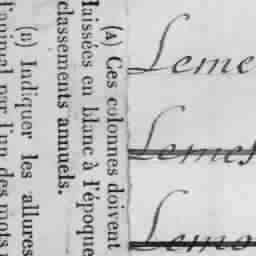 (A) Ces colonnes doivent
laissées en blanc à l'époque
classements annuels.
(B) Indiquer les allures
l'animal par l'un des mots
Leme
Lemes
Lemo